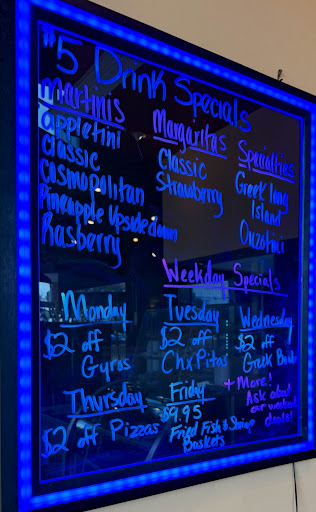 $5 Drink Specials
Martinis
appletini
classic
cosmopolitan
Pineapple Upside down
Rasberry
Margaritas
Classic
Strawberry
Specialties
Greek long
Island
Ouzotini
Weekday Specials
Monday
$2 off
Gyros
Tuesday
$2 off
Chx Pitas
Wednesday
$2 off
Greek
Thursday
$2 off Pizzas
Friday
$9.95
Fried Fish & Shrimp
Baskets
+ More!
Ask about
our weekend
deals!